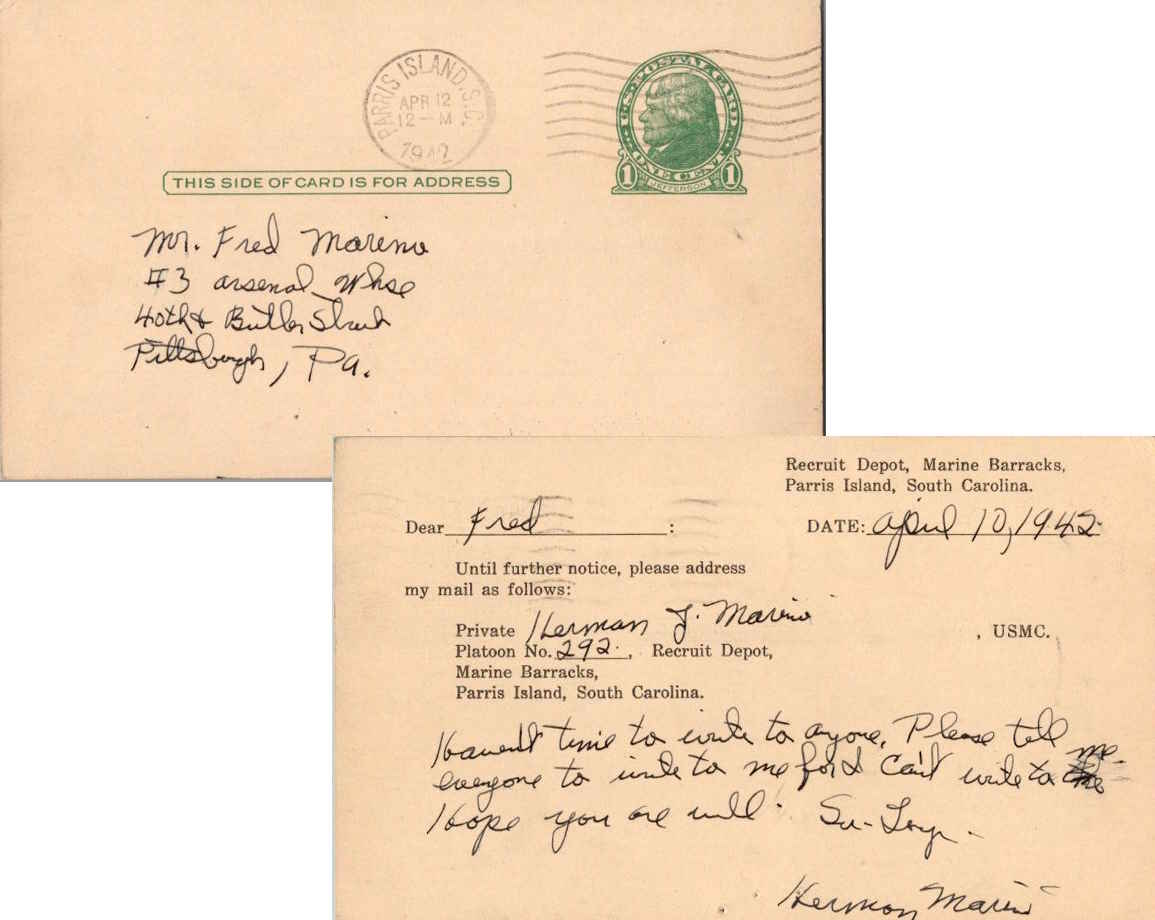 PARRIS ISLAND, S.C.
APR 12
12-M
1942
U.S. POSTAL CARD
ONE CENT
1 JEFFERSON 1
THIS SIDE OF CARD IS FOR ADDRESS
Mr. Fred Marino
#3 Arsenal Whse
40th & Butler Street
Pittsburgh, Pa.
Recruit Depot, Marine Barracks,
Parris Island, South Carolina.
Dear Fred :
DATE: April 10, 1942
Until further notice, please address
my mail as follows:
Private Herman J. Marino , USMC.
Platoon No. 292. , Recruit Depot,
Marine Barracks,
Parris Island, South Carolina.
Haven't time to write to anyone. Please tell
everyone to write to me for I can't write to
Hope you are well. So-Long-
Herman Marino